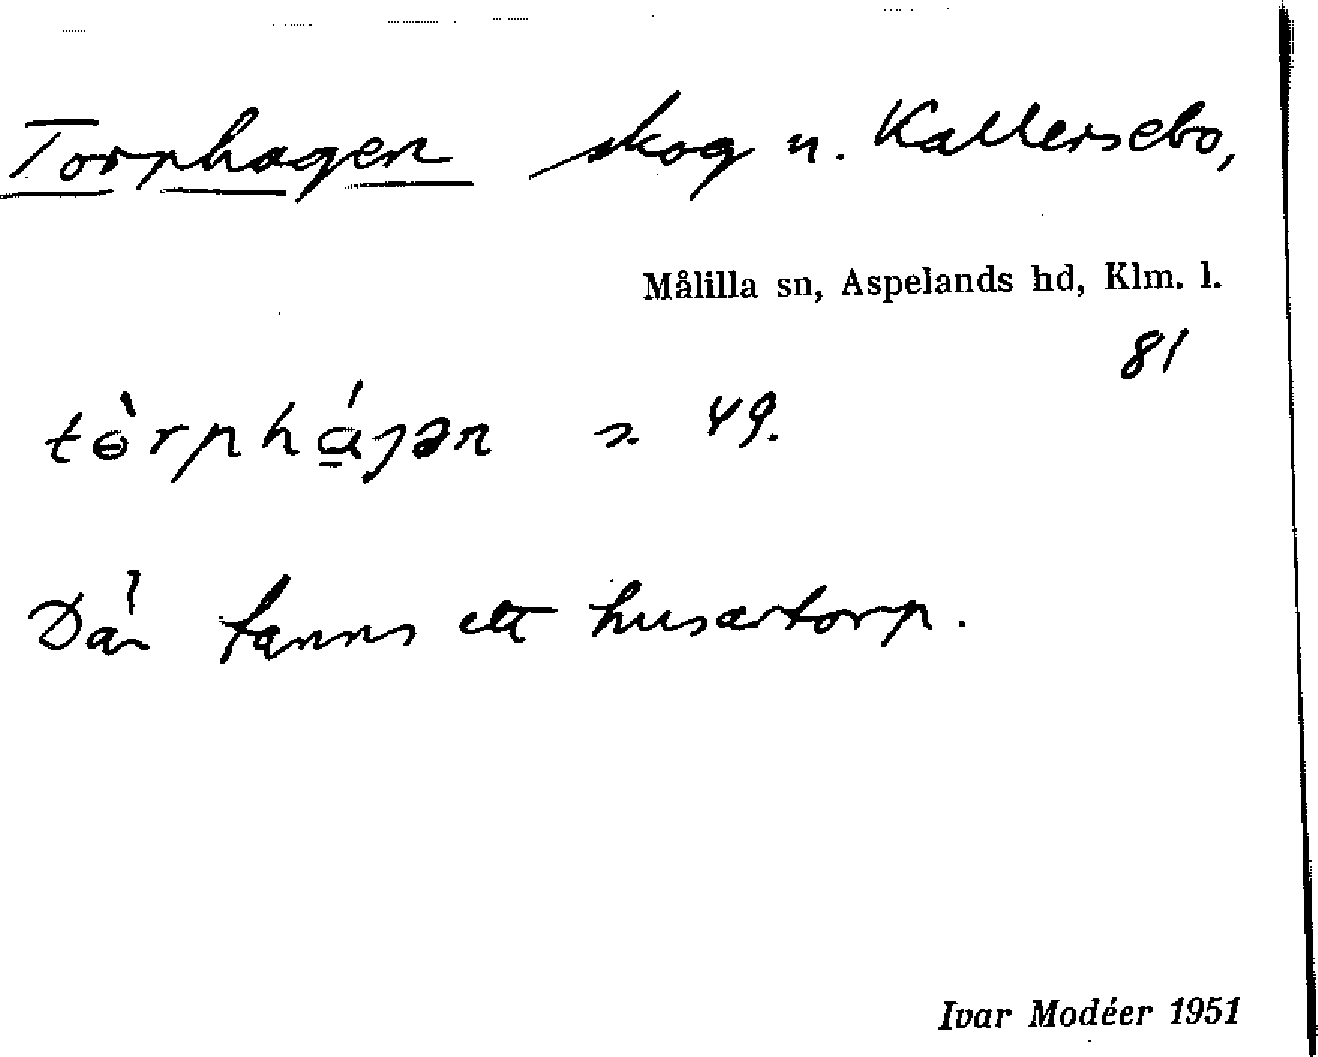 Torphagen skog u. Kallersebo,
Målilla sn, Aspelands hd, Klm. l.
81
tɵ̀rphá̱gən 49.
Där fanns ett husartorp.
Ivar Modéer 1951